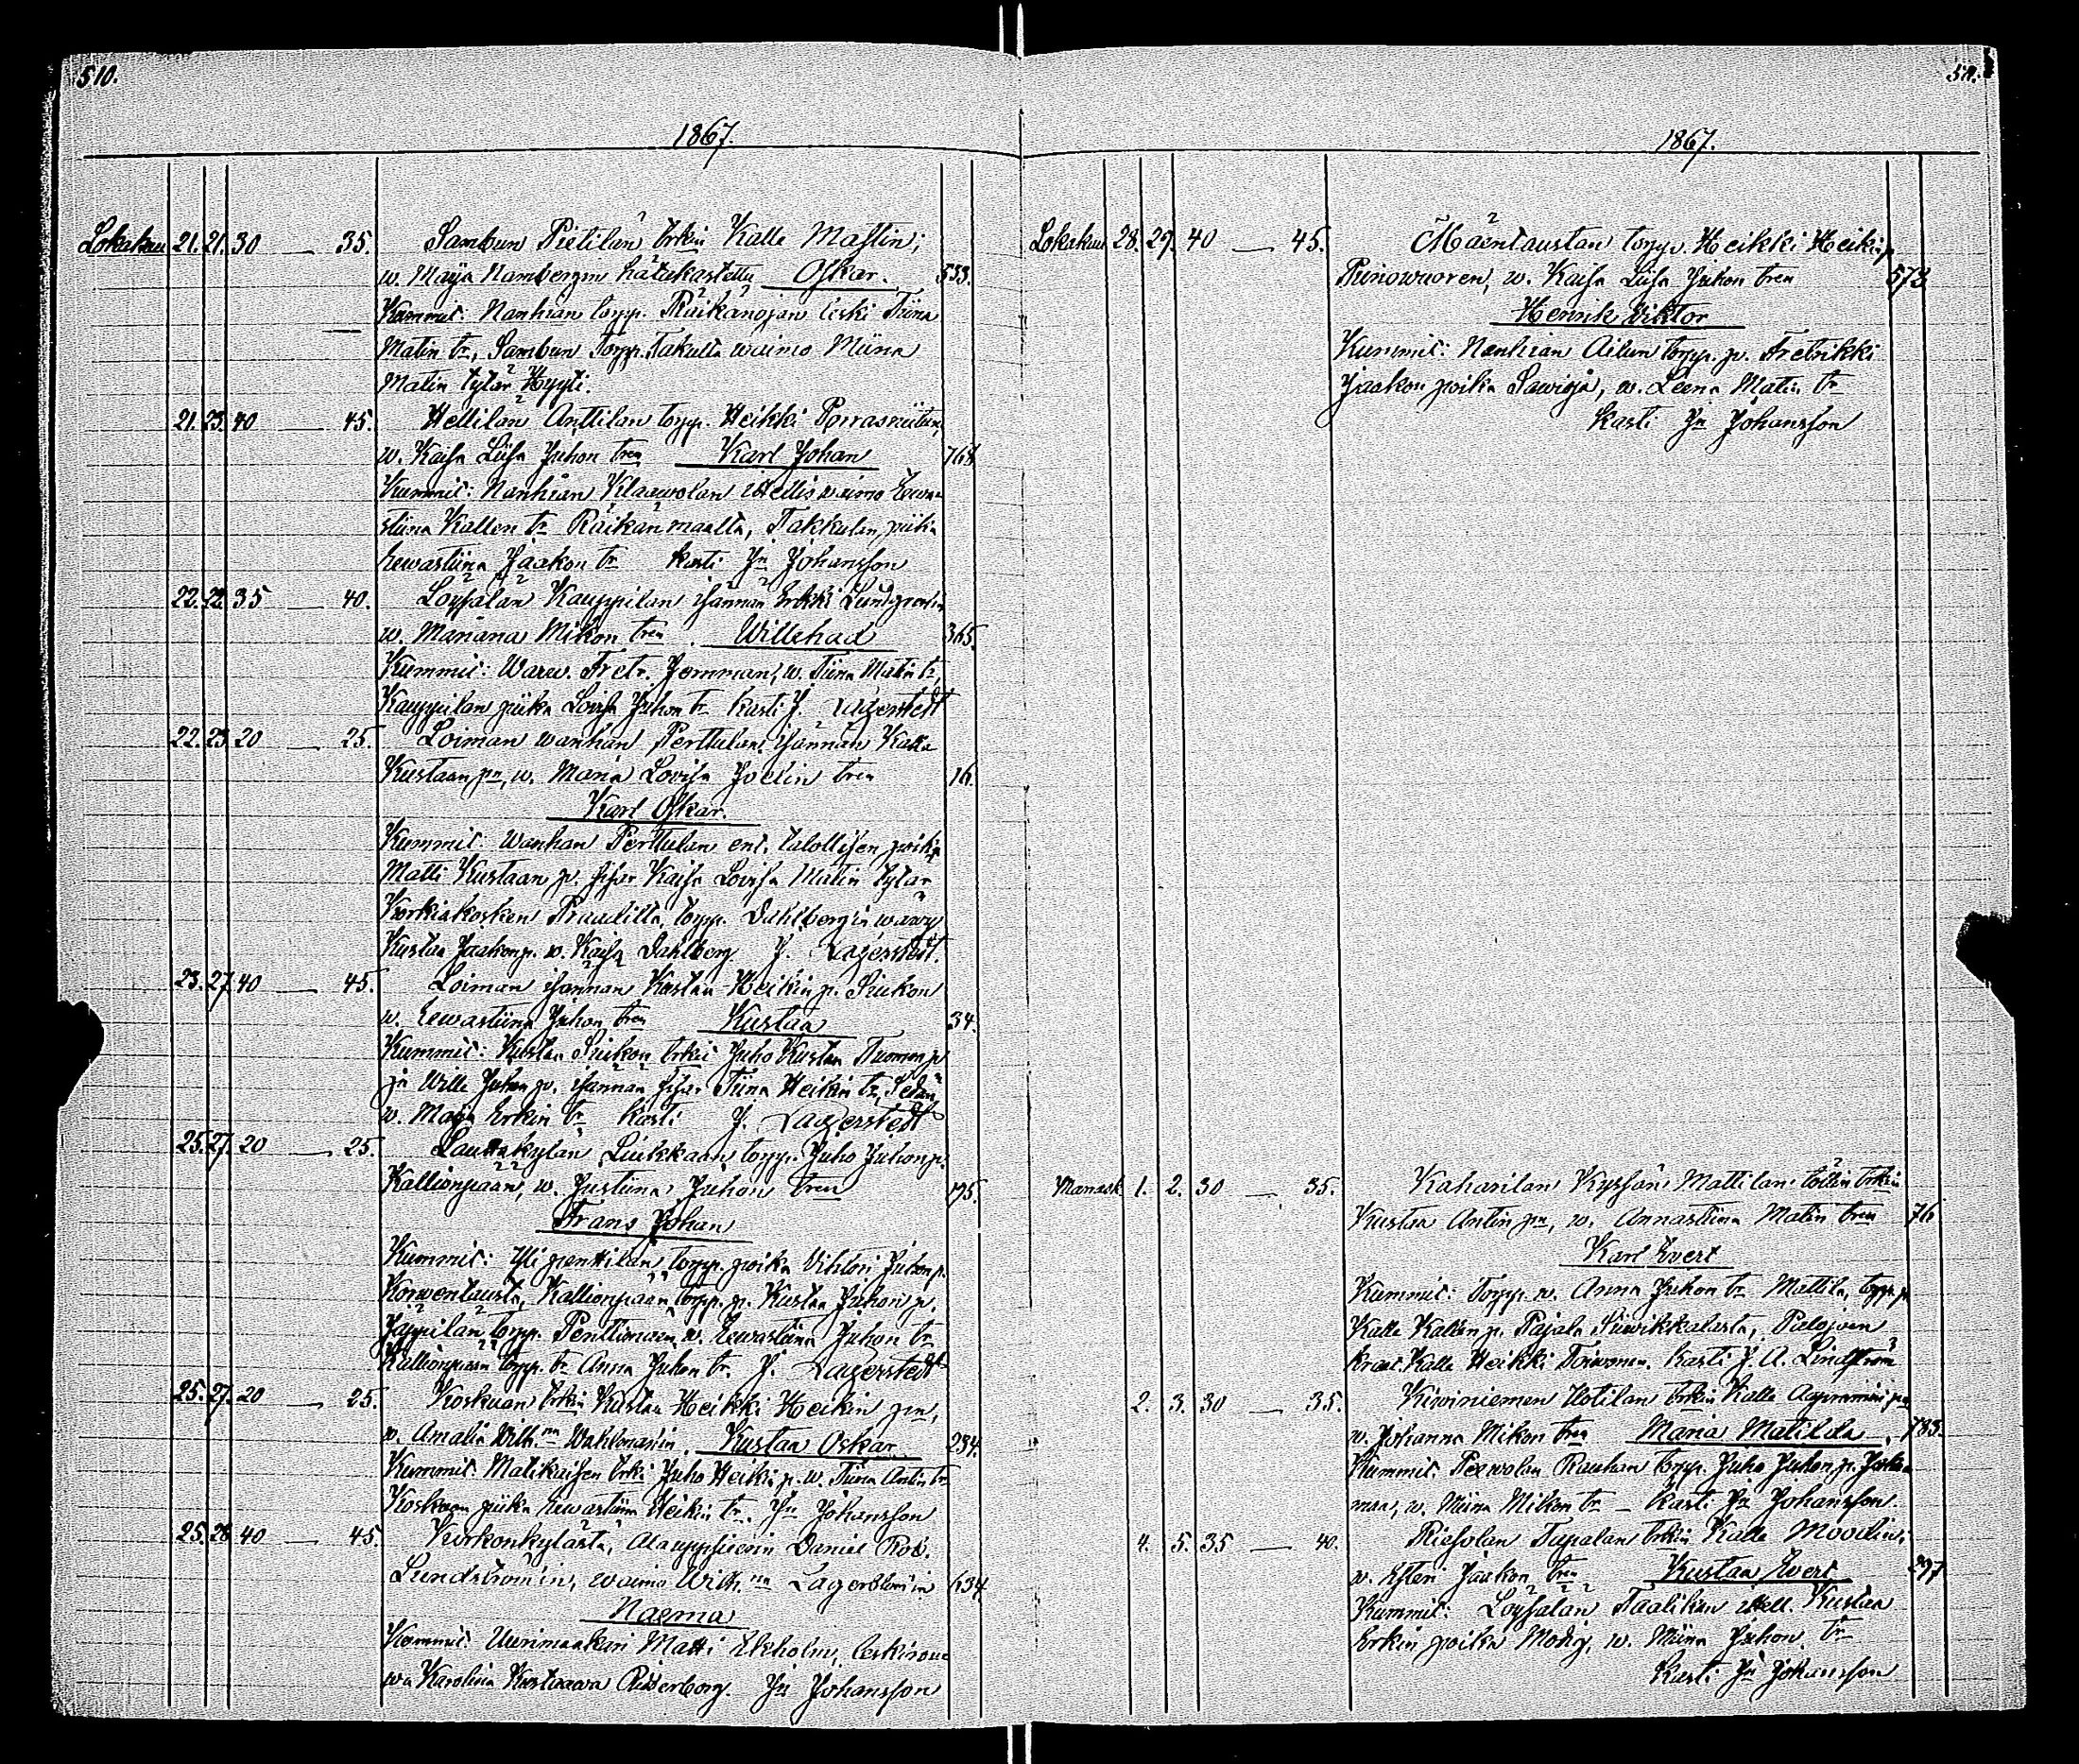 510.
1867.
Lokakuu 21. 21. 30 — 35. Sambun Pietilän trkin Kalle Mastin;
w. Maija Nambergin hätäkastettu Oskar. 533.
Kummit: Nanhian torpp. Räikänojan leski Tiina
Matin tr, Sambun torpp. Takulta waimo Miina
Matin tytär Hyyti.
21. 23. 40 — 45. Hellilän Anttilan torpp. Heikki
w. Kaisa Liisa Juhon tren Karl Johan 768
Kummit: Nanhian Klaawolan itsellis waimo Eewa
stiina Kallen tr Räikänmaalta, Takkulan piika
Eewastiina Jaakon tr kasti Jn Johansson
22. 22. 35 — 40. Loysälän Kauppilan isännän Erkki Lundgrenin
w. Mariana Mikon tren Willehad 365.
Kummit: Warw. Fretr. w. Tiina Matin tr,
Kauppilan piika Lovisa Juhon tr kasti J. Lagerstedt
22. 23. 20 — 25. Loiman wanhan Perttulan isännän Kalle
Kustaan pn, w. Maria Lovisa Joelin tren 16.
Karl Oskar.
Kummit: Wanhan Perttulan ent. talollisen poika
Matti Kustaan p. sisar Kaisa Lovisa Matin tytär
Korkiakosken torpp. Dahlbergin wäwy
Kustaa Jaakon p. w. Kaisa Dahlberg. J. Lagerstedt.
23. 27. 40 — 45. Loiman isännän Kustaa Heikin p. Siukon
w. Eewastiina Juhon tren Kustaa 34.
Kummit: Kustaa Siukon trkit Juho Kustaa Tuomon p
ja Wille Juhon p. isännän sisar Tiina Heikin tr,
w. Maija Erkin tr kasti J. Lagerstedt
25. 27. 20 — 25. Lauttakylän Liukkaan torpp. Juho Juhon p.
Kallionpään, w. Justiina Juhon tren 195.
Frans Johan
Kummit: Yli penttilän torpp. poika Vihtori Juhon p.
Korwentausta, Kallionpään torpp. p. Kustaa Juhon p.
Jäppilän torpp. w. Eewastiina Juhon tr
Kallionpään torpp. tr Anna Juhon tr. J. Lagerstedt
25. 27. 20 — 25. Koskuan trkin Kustaa Heikki Heikin pn,
w. Amalia Wilh.na Wahlmanin. Kustaa Oskar. 234.
Kummit: Matikaisen trki Juho Heikin p. w. Tiina Antin tr
Koskuan piika Eewastiina Heikin tr. Jn Johansson
25. 28. 40 — 45. Kurkonkylästä, Alauppsierin Daniel Rob.
Lundströmin, waimo Wilh.na Lagerblomin 634
Naema
Kummit: Uurimaakari Matti Ekholm, leskirou
wa Karolina Kustaawa Ridderborg. Jn Johansson
1867.
Lokakuu 28. 29. 40 — 45. Mäentaustan torpp. Heikki Heikin p
Runowuoren, w. Kaisa Liisa Juhon tren 573
Henrik Viktor
Kummit: Nanhian Ailun torpp. p. Fretrikki
Jaakon poika Sawioja, w. Leena Matin tr
kasti Jn Johansson
Marrask. 1. 2. 30 — 35. Kaharilan Kyssän Mattilan trkin
Kustaa Antin pn, w. Annastiina Matin tren 76
Karl Evert
Kummit: Torpp. w. Anna Juhon tr Mattila, torpp. p
Kalle Kallen p. Pajala Suwikkalasta, Palojoen
Kalle Heikki Toiwonen. kasti J. A. Lindström
2. 3. 30 — 35. Kiwiniemen Hotilan trkin Kalle
w. Johanna Mikon tren Maria Matilda. 783.
Kummit: Peewolan Rauhan torpp. Juho Juhon p.
maa, w. Miina Mikon tr — kasti Jn Johansson.
4. 5. 35 — 40. Riesolan Tapalan trkin Kalle Moodin;
w. Esteri Jaakon tren Kustaa Evert 297
Kummit: Loysälän Taalikan itsell. Kustaa
Erkin poika Modig, w. Miina Juhon tr
kasti Jn Johansson